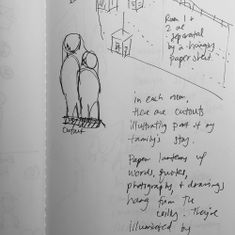 Room 1 +
2 are
separated
by a hanging
paper sheet.
in each room,
there are cutouts
illustrating part of my
family's stay.
Paper lanterns w/
words, quotes,
photographs, + drawings
hang from the
ceiling. They're
illuminated by
Cutout